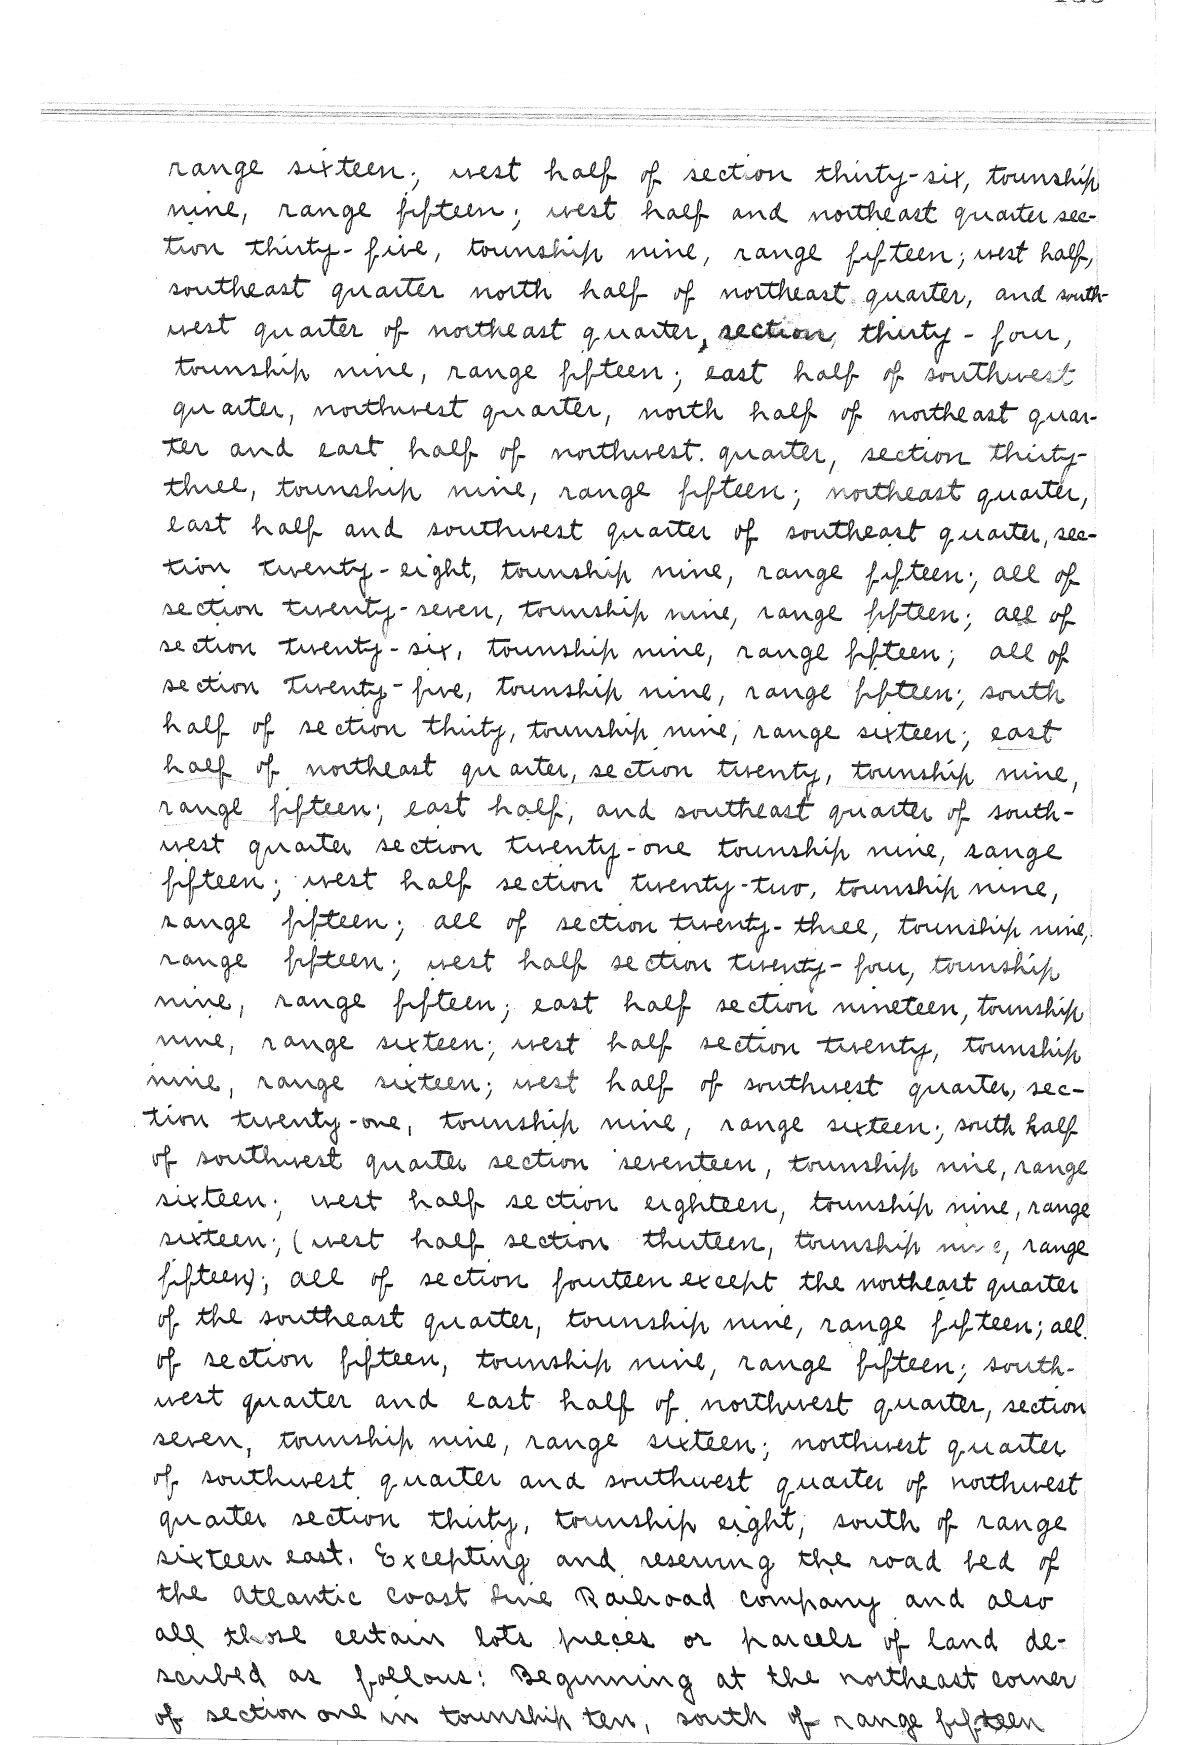 range sixteen; west half of section thirty-six, township
nine, range fifteen; west half and northeast quarter sec-
tion thirty-five, township nine, range fifteen; west half,
southeast quarter north half of northeast quarter, and south-
west quarter of northeast quarter, section, thirty-four,
township nine, range fifteen; east half of southwest
quarter, northwest quarter, north half of northeast quar-
ter and east half of northwest quarter, section thirty-
three, township nine, range fifteen; northeast quarter,
east half and southwest quarter of southeast quarter, sec-
tion twenty-eight, township nine, range fifteen; all of
section twenty-seven, township nine, range fifteen; all of
section twenty-six, township nine, range fifteen; all of
section twenty-five, township nine, range fifteen; south
half of section thirty, township nine, range sixteen; east
half of northeast quarter, section twenty, township nine,
range fifteen; east half, and southeast quarter of south-
west quarter section twenty-one township nine, range
fifteen; west half section twenty-two, township nine,
range fifteen; all of section twenty-three, township nine,
range fifteen; west half section twenty-four, township
nine, range fifteen; east half section nineteen, township
nine, range sixteen; west half section twenty, township
nine, range sixteen; west half of southwest quarter, sec-
tion twenty-one, township nine, range sixteen; south half
of southwest quarter section seventeen, township nine, range
sixteen; west half section eighteen, township nine, range
sixteen; (west half section thirteen, township nine, range
fifteen); all of section fourteen except the northeast quarter
of the southeast quarter, township nine, range fifteen; all
of section fifteen, township nine, range fifteen; south-
west quarter and east half of northwest quarter, section
seven, township nine, range sixteen; northwest quarter
of southwest quarter and southwest quarter of northwest
quarter section thirty, township eight, south of range
sixteen east. Excepting and reserving the road bed of
the Atlantic Coast Line Railroad Company and also
all those certain lots pieces or parcels of land de-
scribed as follows: Beginning at the northeast corner
of section one in township ten, south of range fifteen